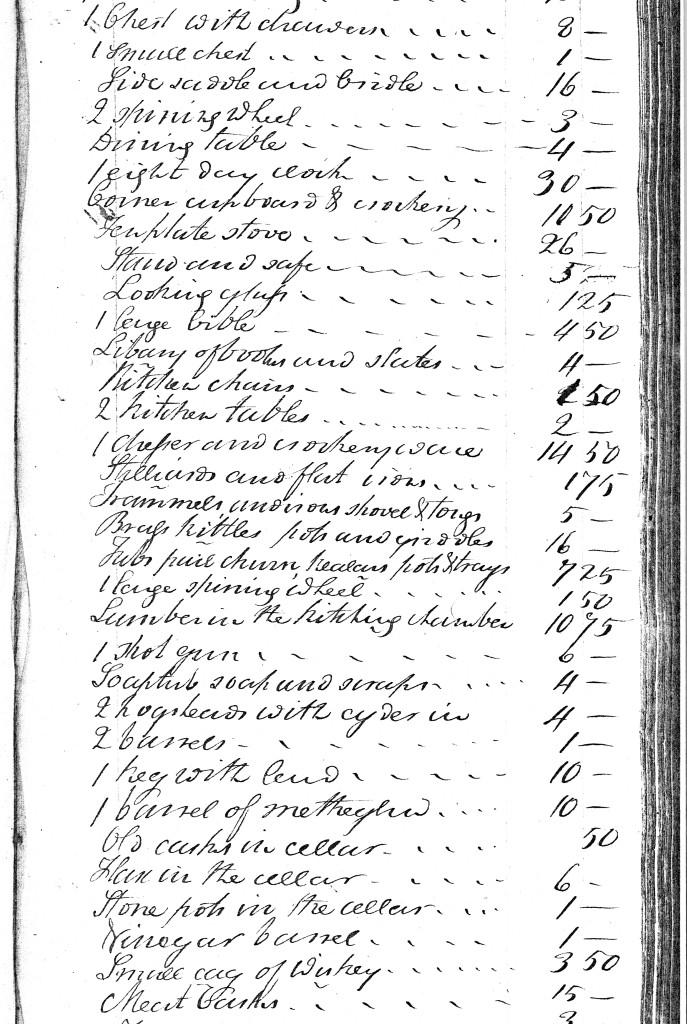 1 Chest with drawers .... 8 —
1 Small chest ..... 1 —
Side saddle and bridle .... 16 —
2 spining wheel ..... 3 —
Dining table ..... 4 —
1 eight day clock .... 30 —
Corner cupboard & crockery .. 10 50
Tenplate stove ..... 26 —
Stand and safe ..... 5 —
Looking glass ..... 1 25
1 large bible ..... 4 50
Libary of books and slates ... 4 —
Kitchen chairs ..... 50
2 kitchen tables ..... 2 —
1 dresser and crockeryware 14 50
Stilliards and flat irons .... 1 75
Trammels andirons shovel & tongs 5 —
Brass kittles pots and griddles 16 —
Tubs pail churn pots & trays 7 25
1 large spining wheel ..... 1 50
Lumber in the Kitching chamber 10 75
1 shot gun ..... 6 —
Soaptub soap and scraps .... 4 —
2 hogsheads with cyder in 4 —
2 barrels ..... 1 —
1 keg with lard .... 10 —
1 barrel of metheglin .... 10 —
Old casks in cellar .... 50
Flax in the cellar .... 6 -
Stone pots in the cellar .... 1 —
Vinegar barrel .... 1 —
Small cag of Wiskey ..... 3 50
Meat Casks ..... 15 —